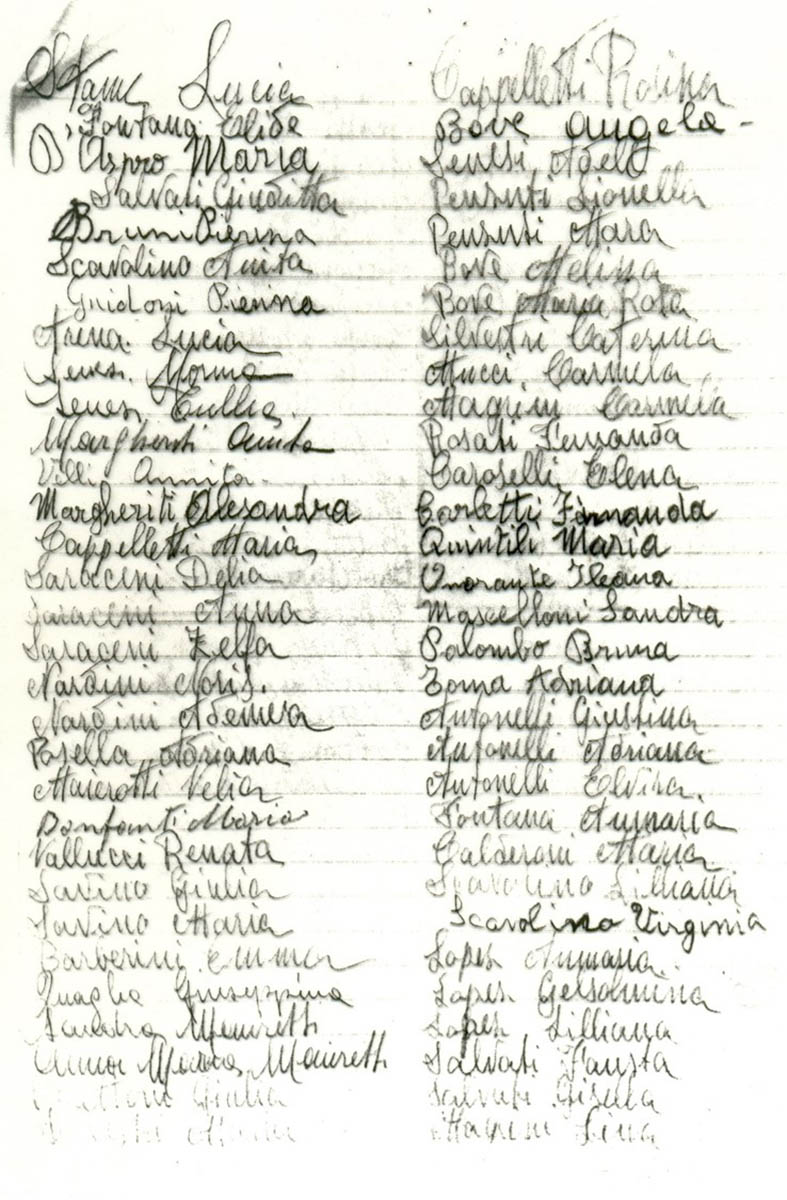 Lucia
Fontana Elide
D'Aspro Maria
Salvati Giuditta
Bruni Pierina
Scavolino Anita
Guidoni Pierina
Arena Lucia
Senesi Norma
Senesi Tullia
Margheriti Anita
Villi Annita
Margheriti Alesandra
Cappelletti Maria
Saraceni Delia
Saraceni Anna
Saraceni Zelfa
Nardini Noris.
Nardini Ademera
Posella Adriana
Maierotti Velia
Bonfanti Maria
Vallucci Renata
Savino Giulia
Savino Maria
Barberini Emma
Quaglia Giuseppina
Sandra Meniretti
Anna Maria Mainetti
Giulia
Cappelletti Rosina
Bove Angela -
Senesi Adele
Pensuti Lionella
Pensuti Mara
Bove Melina
Bove Maria Rosa
Silvestri Caterina
Mucci Carmela
Magrini Carmela
Rosati Fernanda
Caroselli Elena
Carletti Fernanda
Quintili Maria
Onorante Ileana
Mascelloni Sandra
Palombo Bruna
Toma Adriana
Antonelli Giustina
Antonelli Adriana
Antonelli Elvira.
Fontana Anmaria
Calderoni Maria
Scavolino Lilliana
Scavolino Virginia
Lopez Anmaria
Lopez Gelsomina
Lopez Lilliana
Salvati Fausta
Salvati Gisella
Magrini Lina